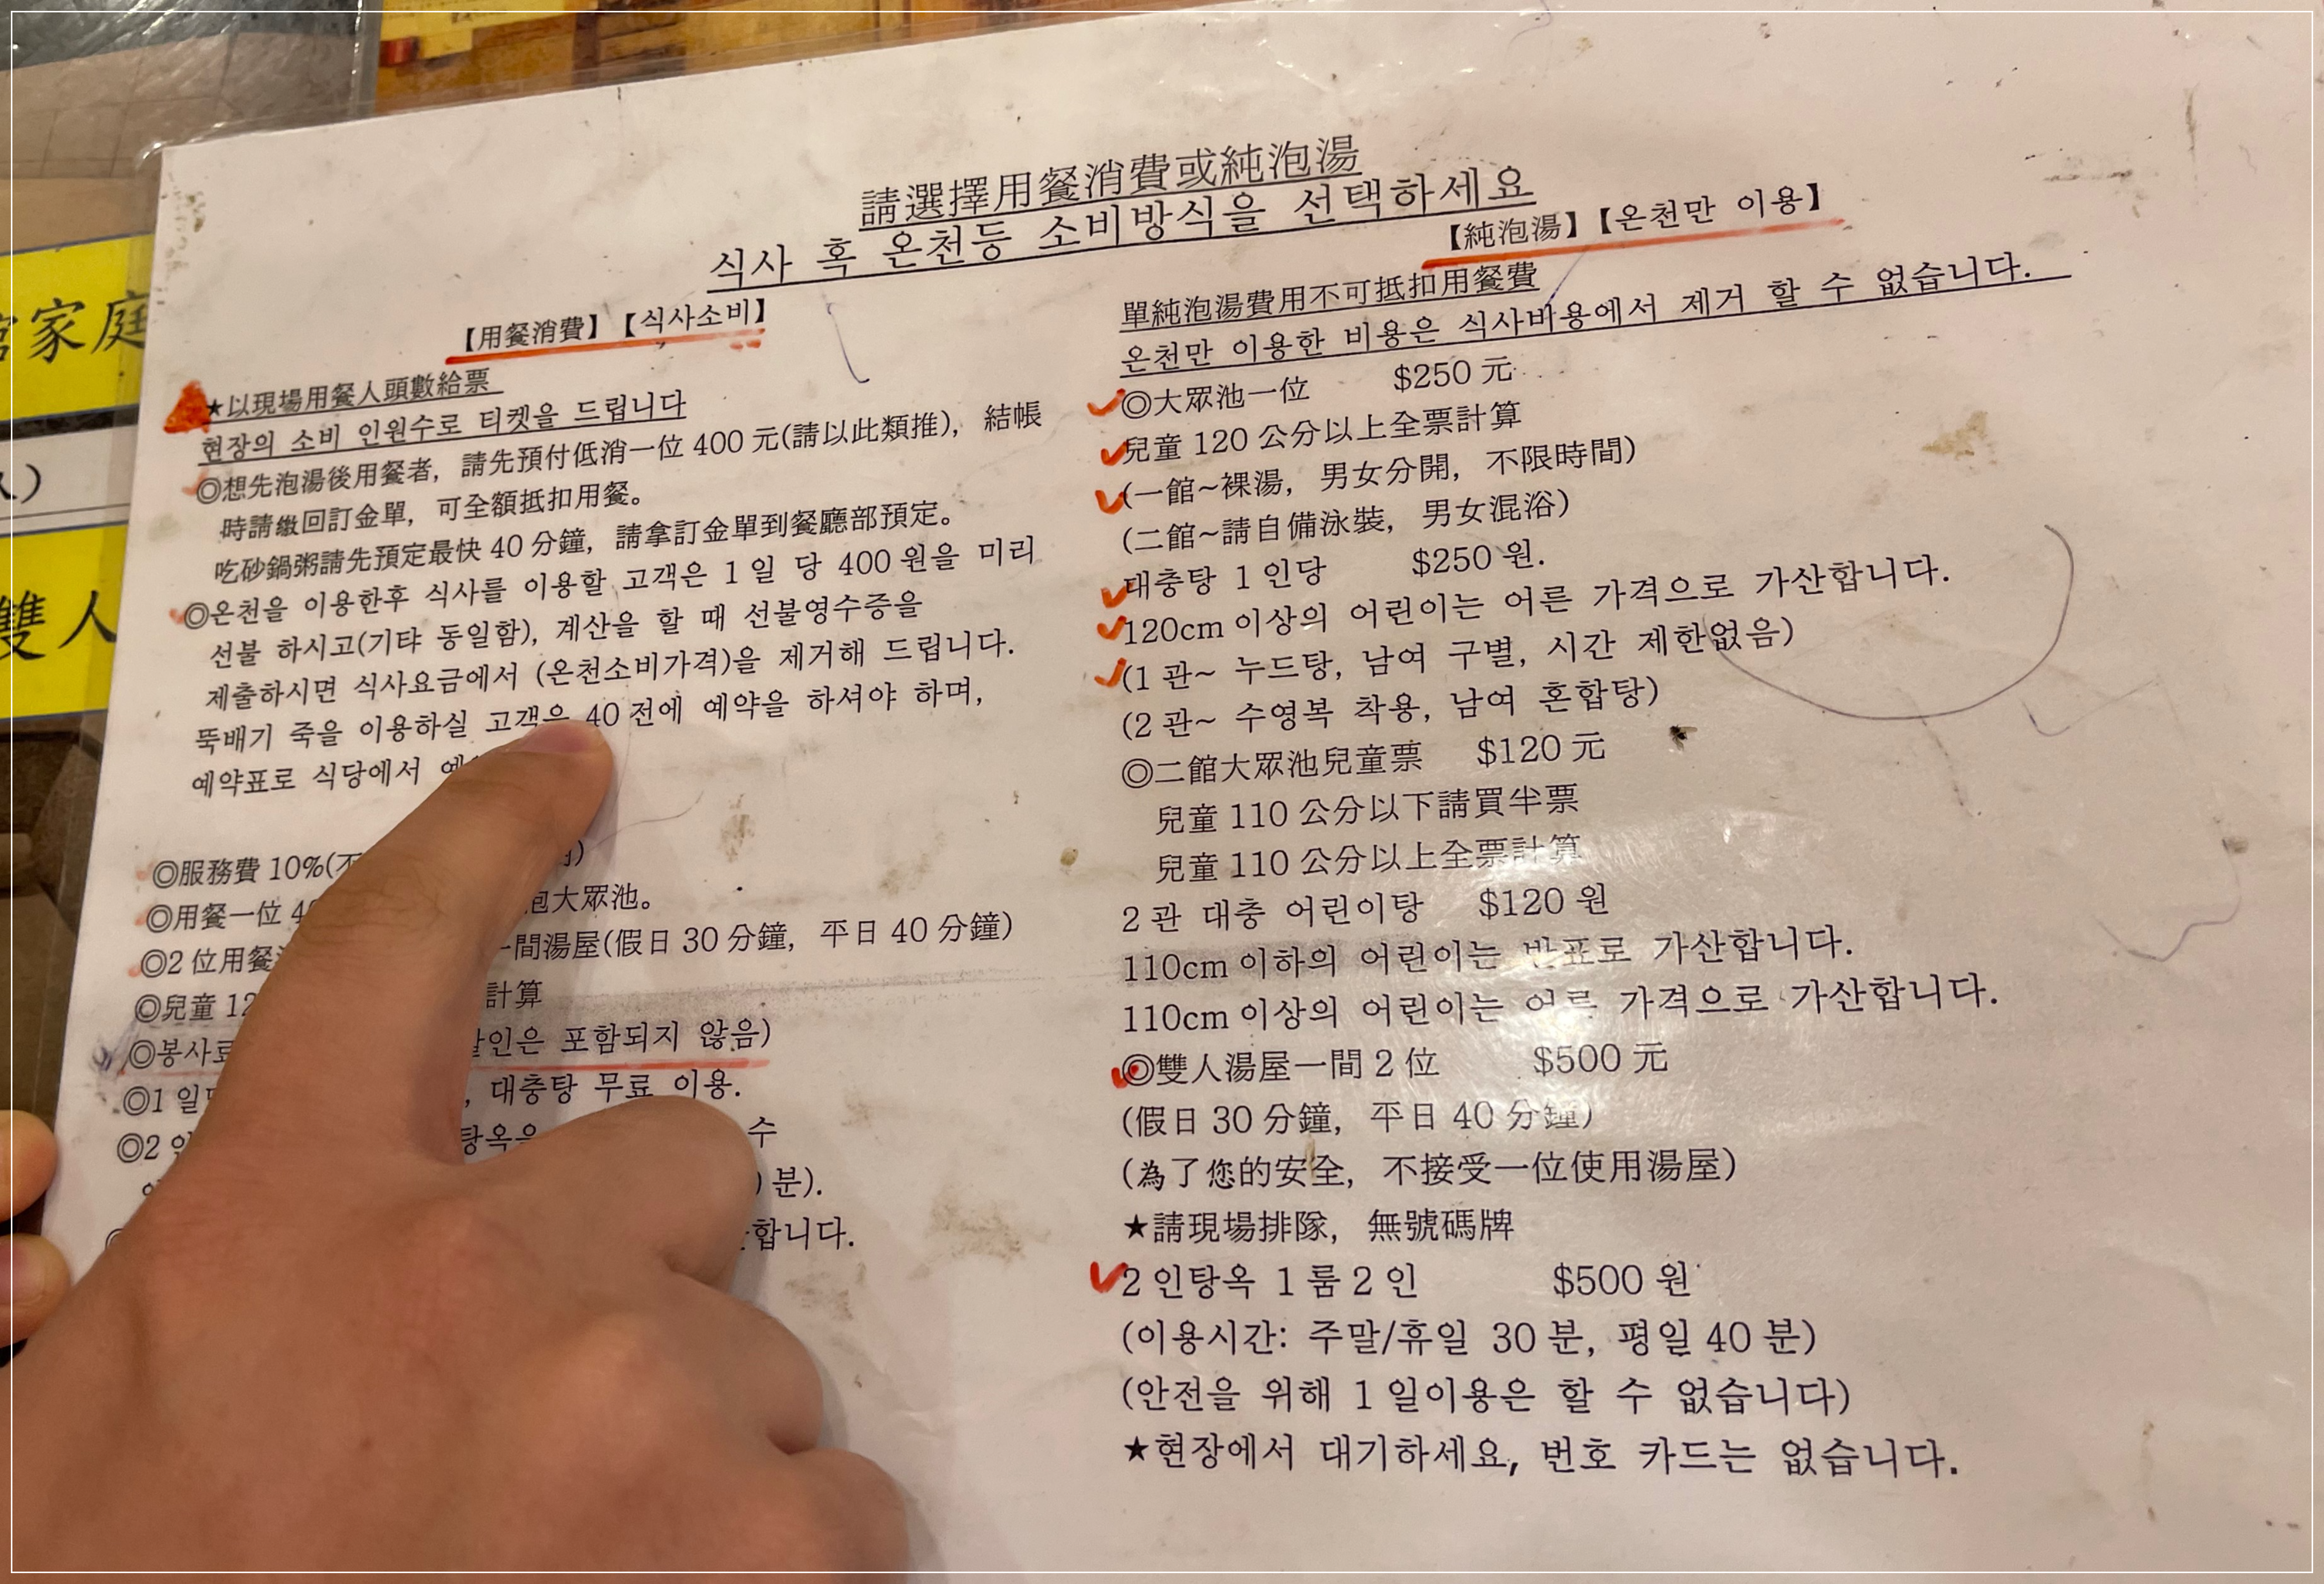 請選擇用餐消費或純泡湯
식사 혹 온천등 소비방식을 선택하세요
【用餐消費】【식사소비】
★以現場用餐人頭數給票
현장의 소비 인원수로 티켓을 드립니다
◎想先泡湯後用餐者，請先預付低消一位 400 元(請以此類推)，結帳
時請繳回訂金單，可全額抵扣用餐。
吃砂鍋粥請先預定最快 40 分鐘，請拿訂金單到餐廳部預定。
◎온천을 이용한후 식사를 이용할 고객은 1 일 당 400 원을 미리
선불 하시고(기탸 동일함), 계산을 할 때 선불영수증을
제출하시면 식사요금에서 (온천소비가격)을 제거해 드립니다.
뚝배기 죽을 이용하실 고객은 40 전에 예약을 하셔야 하며,
예약표로 식당에서
◎服務費 10%(
◎用餐一位
泡大眾池。
◎2 位用餐
一間湯屋(假日 30 分鐘，平日 40 分鐘)
◎兒童 12
計算
◎봉사료
할인은 포함되지 않음)
◎1 일
, 대충탕 무료 이용.
◎2 인
탕옥을
수
분).
합니다.
【純泡湯】【온천만 이용】
單純泡湯費用不可抵扣用餐費
온천만 이용한 비용은 식사바용에서 제거 할 수 없습니다.
◎大眾池一位 $250 元
兒童 120 公分以上全票計算
(一館~裸湯，男女分開，不限時間)
(二館~請自備泳裝，男女混浴)
대충탕 1 인당 $250 원.
120cm 이상의 어린이는 어른 가격으로 가산합니다.
(1 관~ 누드탕, 남여 구별, 시간 제한없음)
(2 관~ 수영복 착용, 남여 혼합탕)
◎二館大眾池兒童票 $120 元
兒童 110 公分以下請買半票
兒童 110 公分以上全票計算
2 관 대충 어린이탕 $120 원
110cm 이하의 어린이는 반표로 가산합니다.
110cm 이상의 어린이는 어른 가격으로 가산합니다.
◎雙人湯屋一間 2 位 $500 元
(假日 30 分鐘，平日 40 分鐘)
(為了您的安全，不接受一位使用湯屋)
★請現場排隊，無號碼牌
2 인탕옥 1 룸 2 인 $500 원
(이용시간: 주말/휴일 30 분, 평일 40 분)
(안전을 위해 1 일이용은 할 수 없습니다)
★현장에서 대기하세요, 번호 카드는 없습니다.
家庭
雙人